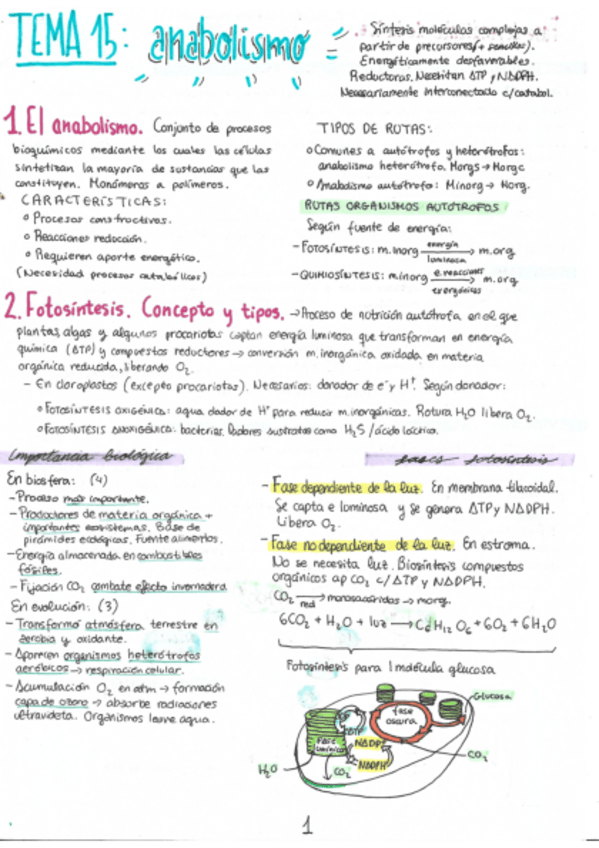 TEMA 15: anabolismo =
Síntesis moléculas complejas a
partir de precursores (+ sencillos).
Energéticamente desfavorables.
Reductoras. Necesitan ATP y NADPH.
Necesariamente interconectado c/catabol.
1. El anabolismo. Conjunto de procesos
bioquímicos mediante los cuales las células
sintetizan la mayoría de sustancias que las
constituyen. Monómeros a polímeros.
CARACTERÍSTICAS:
o Procesos constructivos.
o Reacciones reducción.
o Requieren aporte energético.
(Necesidad procesos catabólicos)
TIPOS DE RUTAS:
o Comunes a autótrofos y heterótrofos:
anabolismo heterótrofo. Morgs → Morgc
o Anabolismo autótrofo: Minorg → Morg.
RUTAS ORGANISMOS AUTÓTROFOS
Según fuente de energía:
- FOTOSÍNTESIS: m. inorg energía luminosa → m. org
- QUIMIOSÍNTESIS: m. inorg e. reacciones exergónicas → m. org
2. Fotosíntesis. Concepto y tipos. → Proceso de nutrición autótrofa en el que
plantas, algas y algunos procariotas captan energía luminosa que transforman en energía
química (ATP) y compuestos reductores → conversión m. inorgánica oxidada en materia
orgánica reducida, liberando O₂.
- En cloroplastos (excepto procariotas). Necesarios: donador de e⁻ y H⁺. Según donador:
o FOTOSÍNTESIS OXIGÉNICA: agua dador de H⁺ para reducir m. inorgánicas. Rotura H₂O libera O₂.
o FOTOSÍNTESIS ANOXIGÉNICA: bacterias. sustratos como H₂S / ácido láctico.
Importancia biológica
En biosfera: (4)
- Proceso más importante.
- Productores de materia orgánica +
importantes ecosistemas. Base de
pirámides ecológicas. Fuente alimentos.
- Energía almacenada en combustibles
fósiles.
- Fijación CO₂ combate efecto invernadero
En evolución: (3)
- Transformó atmósfera terrestre en
aerobia y oxidante.
- Aparecen organismos heterótrofos
aeróbicos → respiración celular.
- Acumulación O₂ en atm → formación
capa de ozono → absorbe radiaciones
ultravioleta. Organismos agua.
fases fotosíntesis
- Fase dependiente de la luz. En membrana tilacoidal.
Se capta e luminosa y se genera ATP y NADPH.
Libera O₂.
- Fase no dependiente de la luz. En estroma.
No se necesita luz. Biosíntesis compuestos
orgánicos ap CO₂ c/ ATP y NADPH.
CO₂ red → monosacáridos → morg.
6CO₂ + H₂O + luz → C₆H₁₂O₆ + 6O₂ + 6H₂O
Fotosíntesis para 1 molécula glucosa
Glucosa
fase
oscura
ATP
Fase
luminosa
NADP
NADPH
CO₂
H₂O
CO₂
1